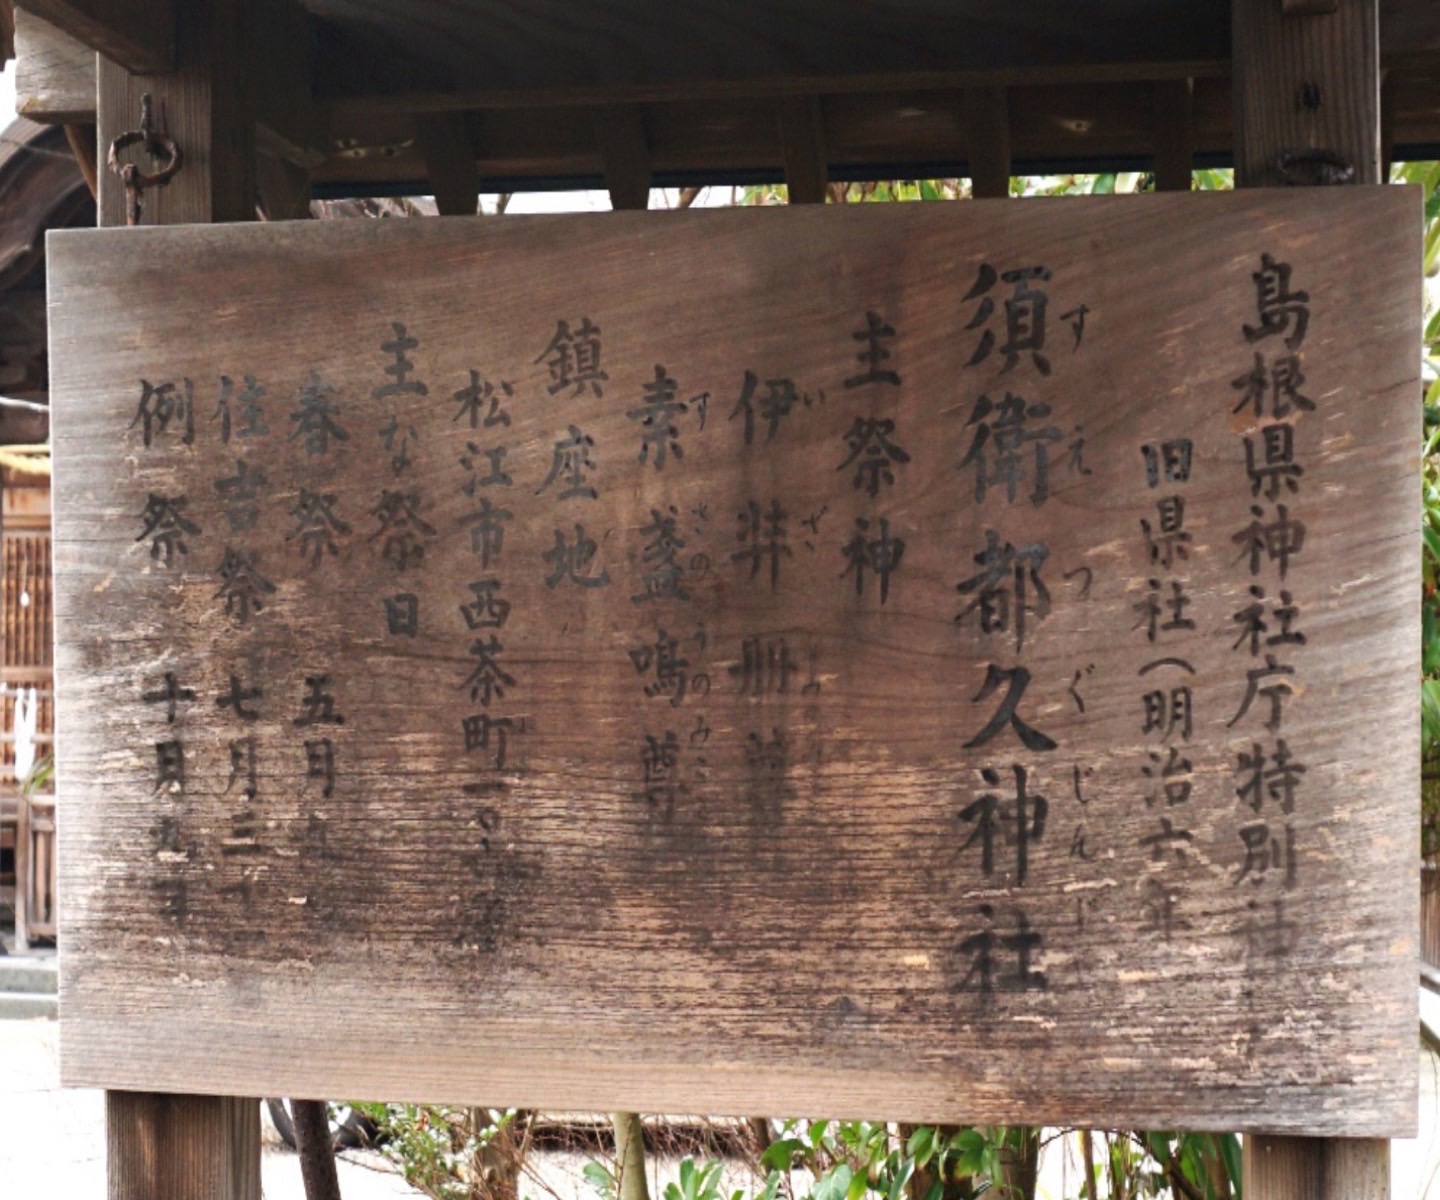 島根県神社庁特別神社
旧県社（明治六年
須衛都久神社
すえつぐじんじゃ
主祭神
伊弉冊尊
いざ
素盞嗚尊
すさのうのみこ
鎮座地
松江市西茶町
主な祭日
春祭 五月
住吉祭 七月三十
例祭 十月九日